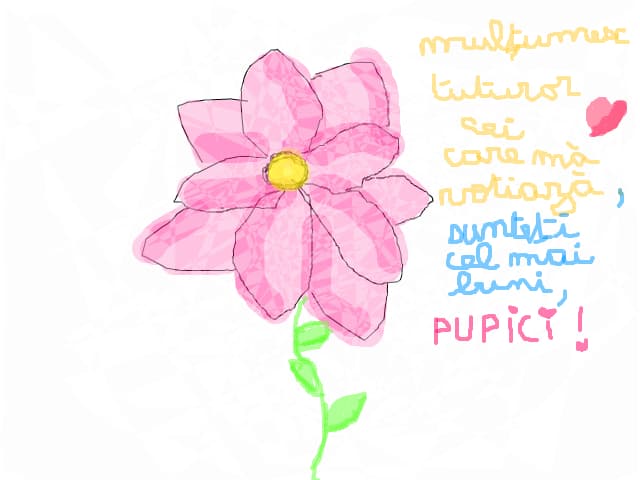 mulțumesc
tuturor
cei
care mă
notiază,
sunteți
cel mai
buni,
PUPICI!